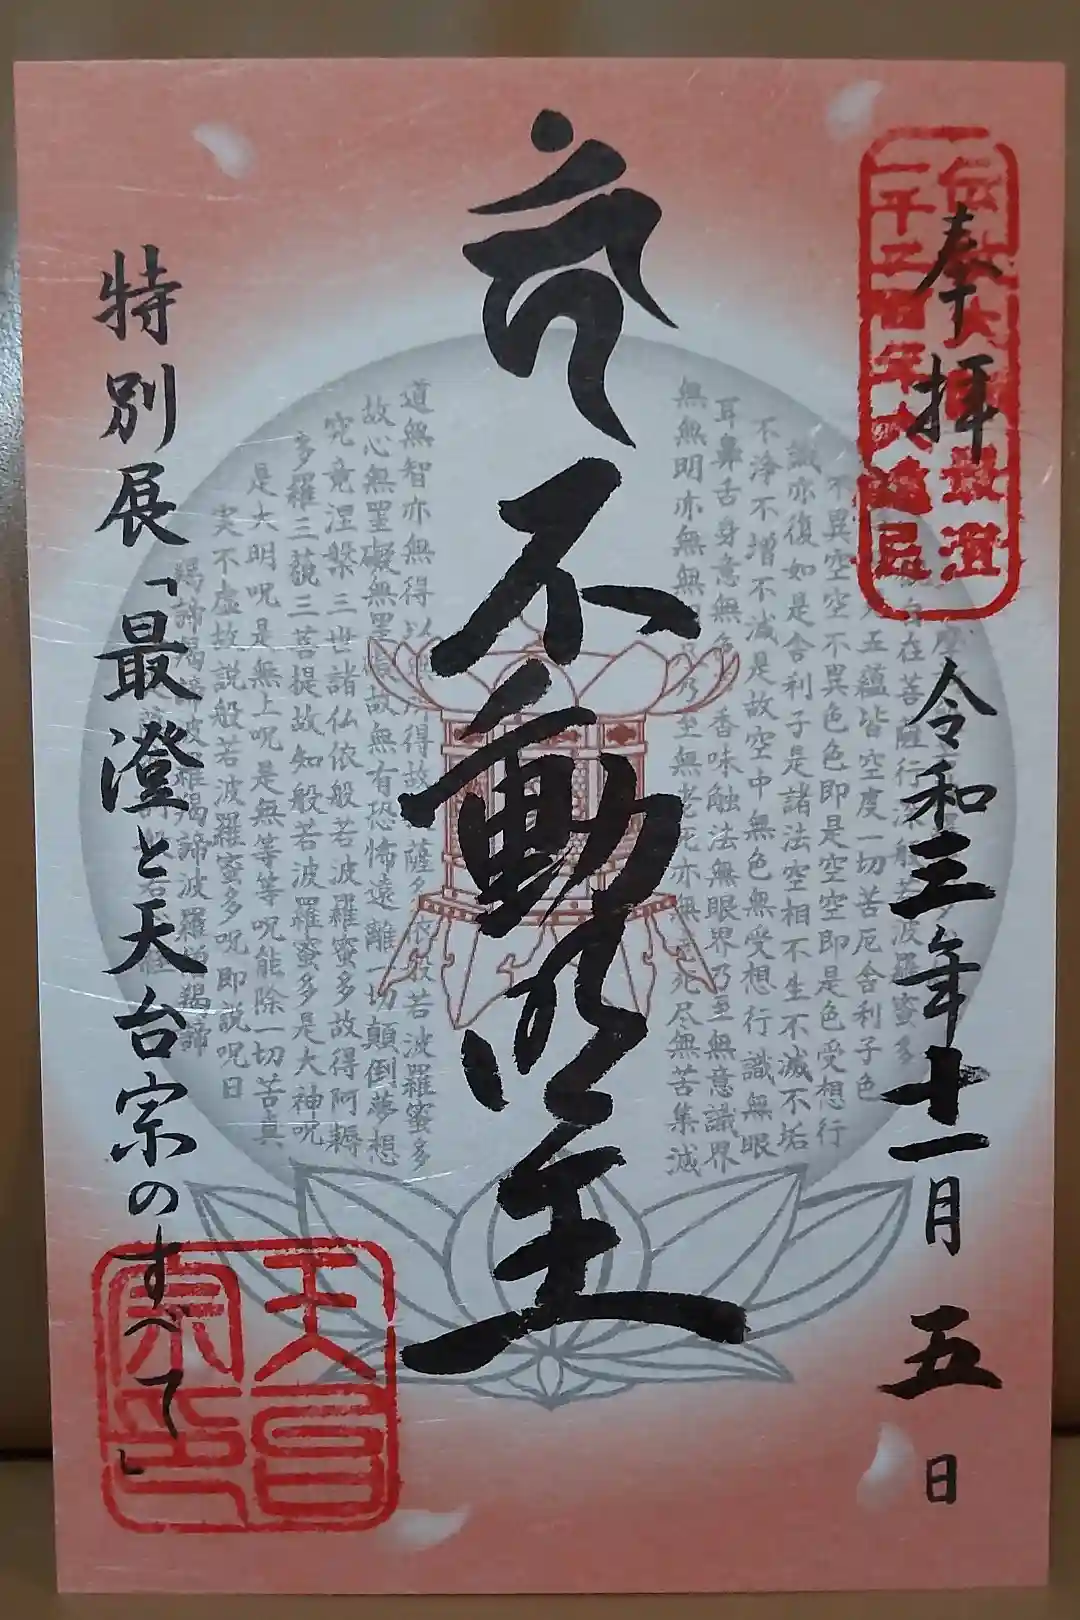 奉拝
伝教大師最澄
一千二百年大遠忌
令和三年十一月五日
不動明王
特別展「最澄と天台宗のすべて」
天台
宗印
不異空空不異色色即是空空即是色受想行
識亦復如是舎利子是諸法空相不生不滅不垢
不浄不増不減是故空中無色無受想行識無眼
耳鼻舌身意無色
香味触法無眼界乃至無意識界
無無明亦無無
乃至無老死亦無
死尽無苦集滅
道無智亦無得以
得故
薩多依般若波羅蜜多
故心無罣礙無罣
故無有恐怖遠離一切顛倒夢想
究竟涅槃三世諸仏依般若波羅蜜多故得阿耨
多羅三藐三菩提故知般若波羅蜜多是大神呪
是大明呪是無上呪是無等等呪能除一切苦真
実不虚故説般若波羅蜜多呪即説呪曰
羯諦羯諦波羅羯諦波羅僧羯諦